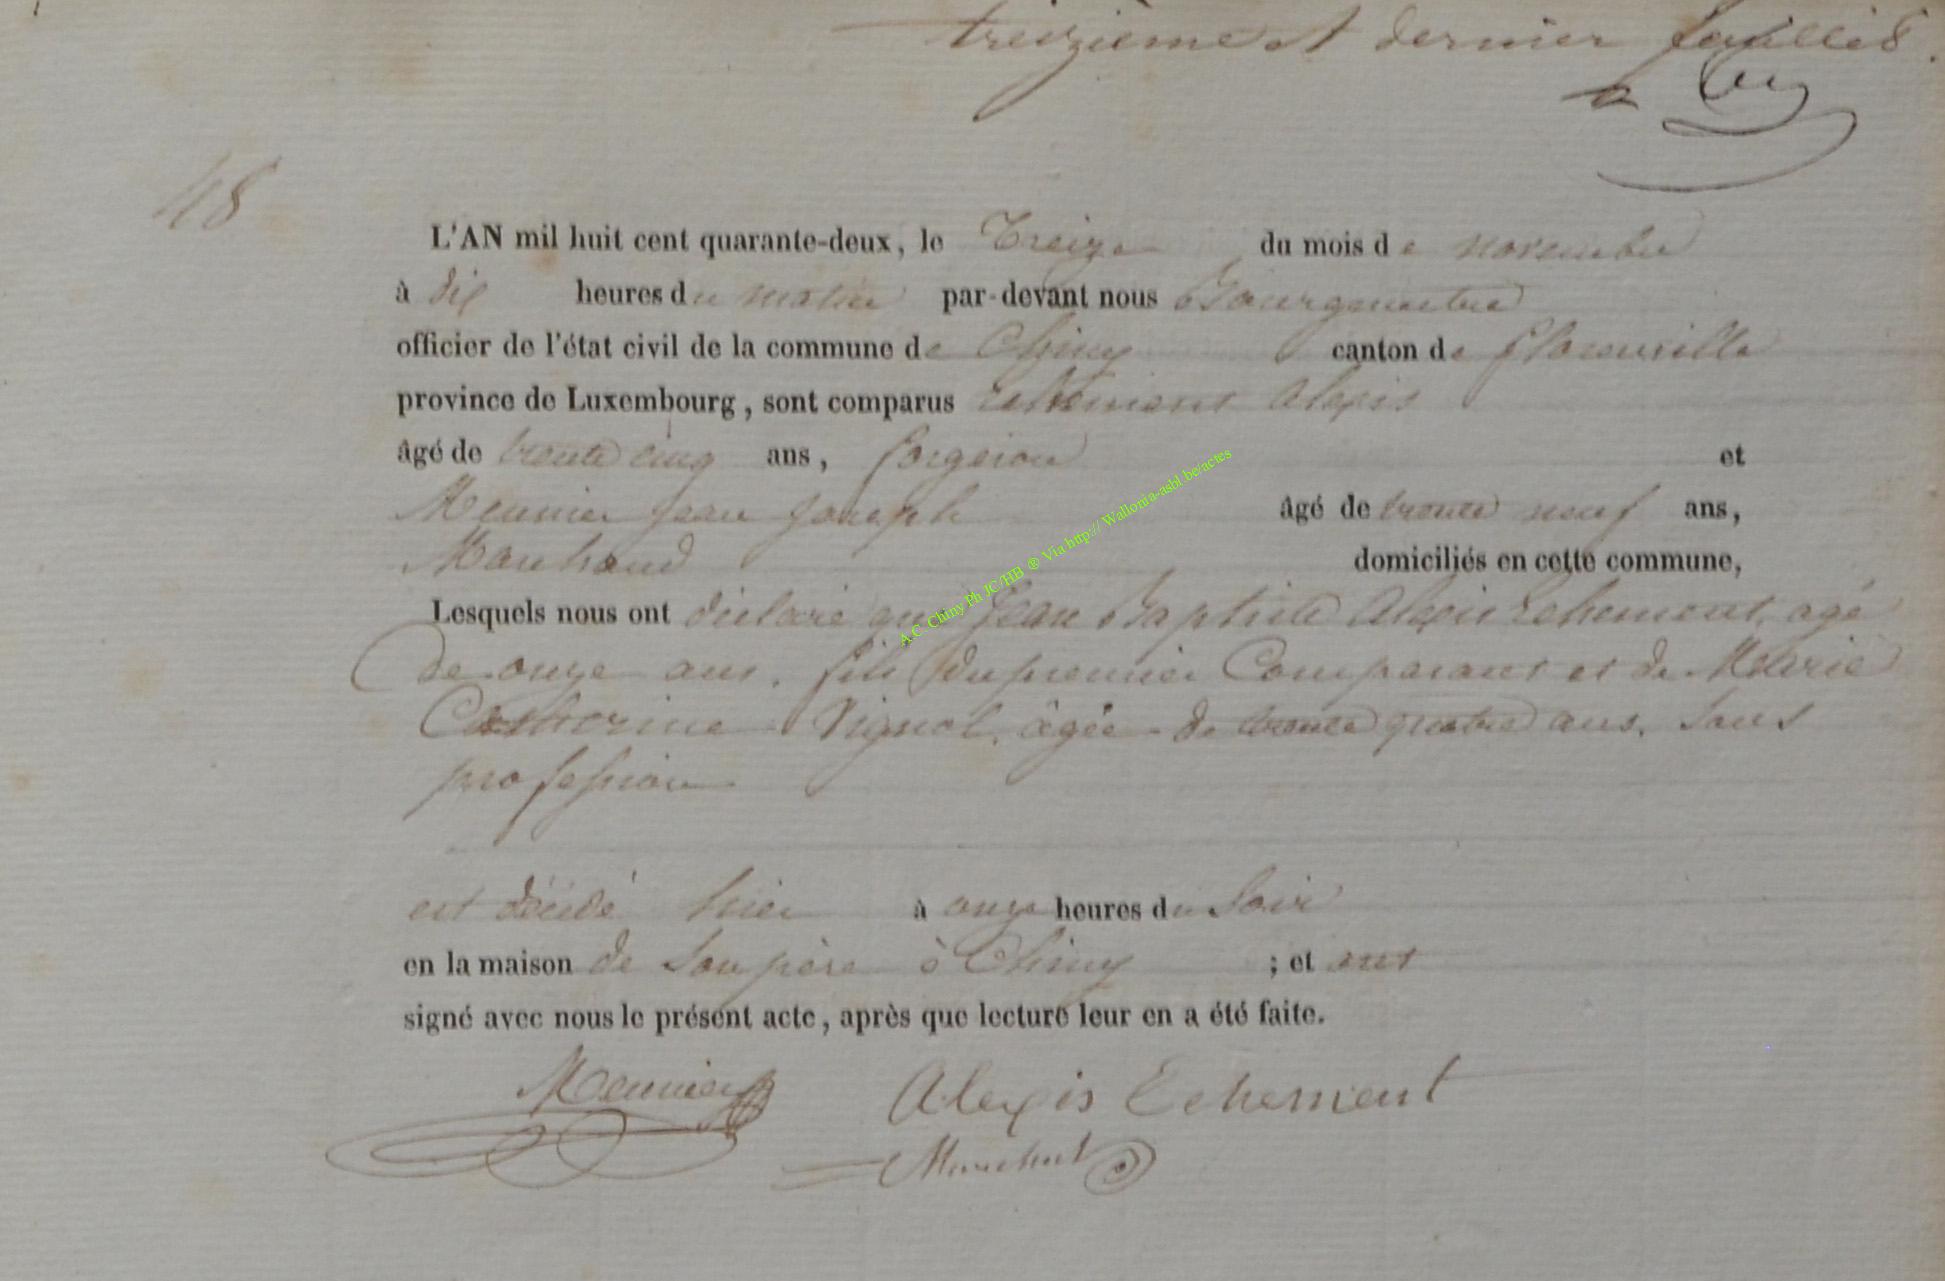 treizième et dernier feuillet.
48
L'AN mil huit cent quarante-deux, le Treize du mois de novembre
à dix heures du matin par-devant nous Bourgmestre
officier de l'état civil de la commune de Chiny canton de florenville
province de Luxembourg, sont comparus Echement alexis
âgé de trente cinq ans, forgeron et
Meunier jean joseph âgé de trente neuf ans,
Marchand domiciliés en cette commune,
Lesquels nous ont déclaré que Jean Baptiste alexis Echement, agé
de onze ans, fils du premier Comparant et de Marie
Catherine Pignol, âgée de trente quatre ans, sans
profession
est décédé hier à onze heures du Soir
en la maison de Son père à Chiny ; et ont
signé avec nous le présent acte, après que lecture leur en a été faite.
Meunier Alexis Echement
Marchal
A.C. Chiny Ph JC/HB ® Via http:// Wallonia-asbl.be/actes